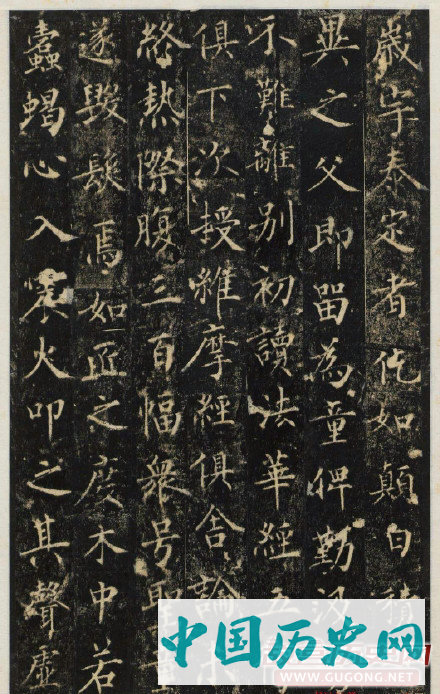 歲宇泰定者仡如顛白積
異之父即留為童俾勤汲
不難離別初讀法華經五
俱下次授維摩經俱舍論
終熱際腹三百幅衆号聖
遂毀髮焉如匠之度木中若
蠹蝎心入寒火叩之其聲虛
中国历史网
WWW.GUGONG.NET